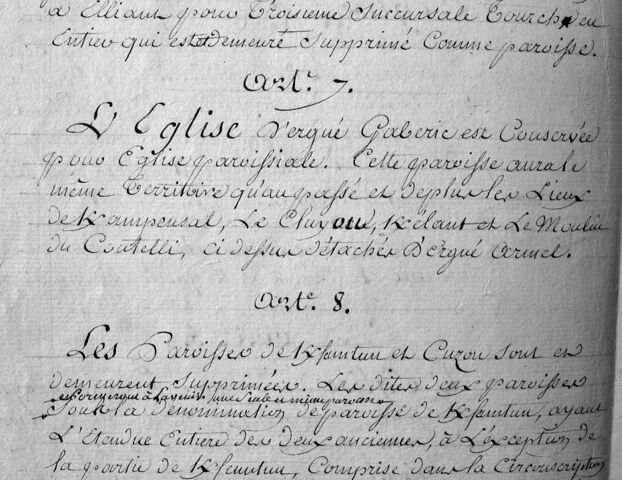 a Elliant pour Troisieme Succursale Tourch, en
Entier qui est et demeure Supprimé Comme paroisse.
Art.e 7.
L'Eglise D'ergué Gaberic est Conservée
pour Eglise paroissiale. Cette paroisse aura le
même Territoire qu'au passé et de plus les Lieux
de Kampensal, Le Cluyou, Kélant et Le Moulin
du Coutelli, ci dessus détachés D'ergué armel.
Art.e 8.
Les Paroisses de Kfeuntun et Cuzou sont et
demeurent Supprimées. Les dites deux paroisses
en formeront à l'avenir une Seule et même paroisse
Sous la dénomination de paroisse de Kfeuntun, ayant
L'Etendue Entiere des deux anciennes, à L'éxception de
la partie de Kfeuntun, Comprise dans la Circonscription